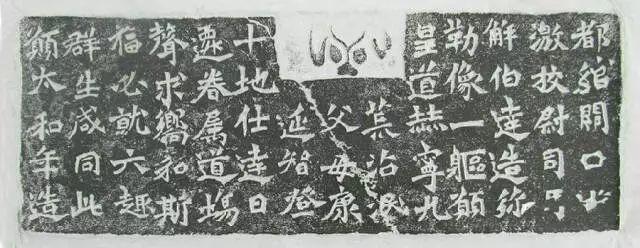 都綰闕口遊
激校尉司馬
解伯達造弥
勒像一軀願
皇道赫寧九
荒沾泯
父母康
延智登
十地仕達日
遷眷屬道場
聲求嚮和斯
福必就六趣
群生咸同此
願太和年造